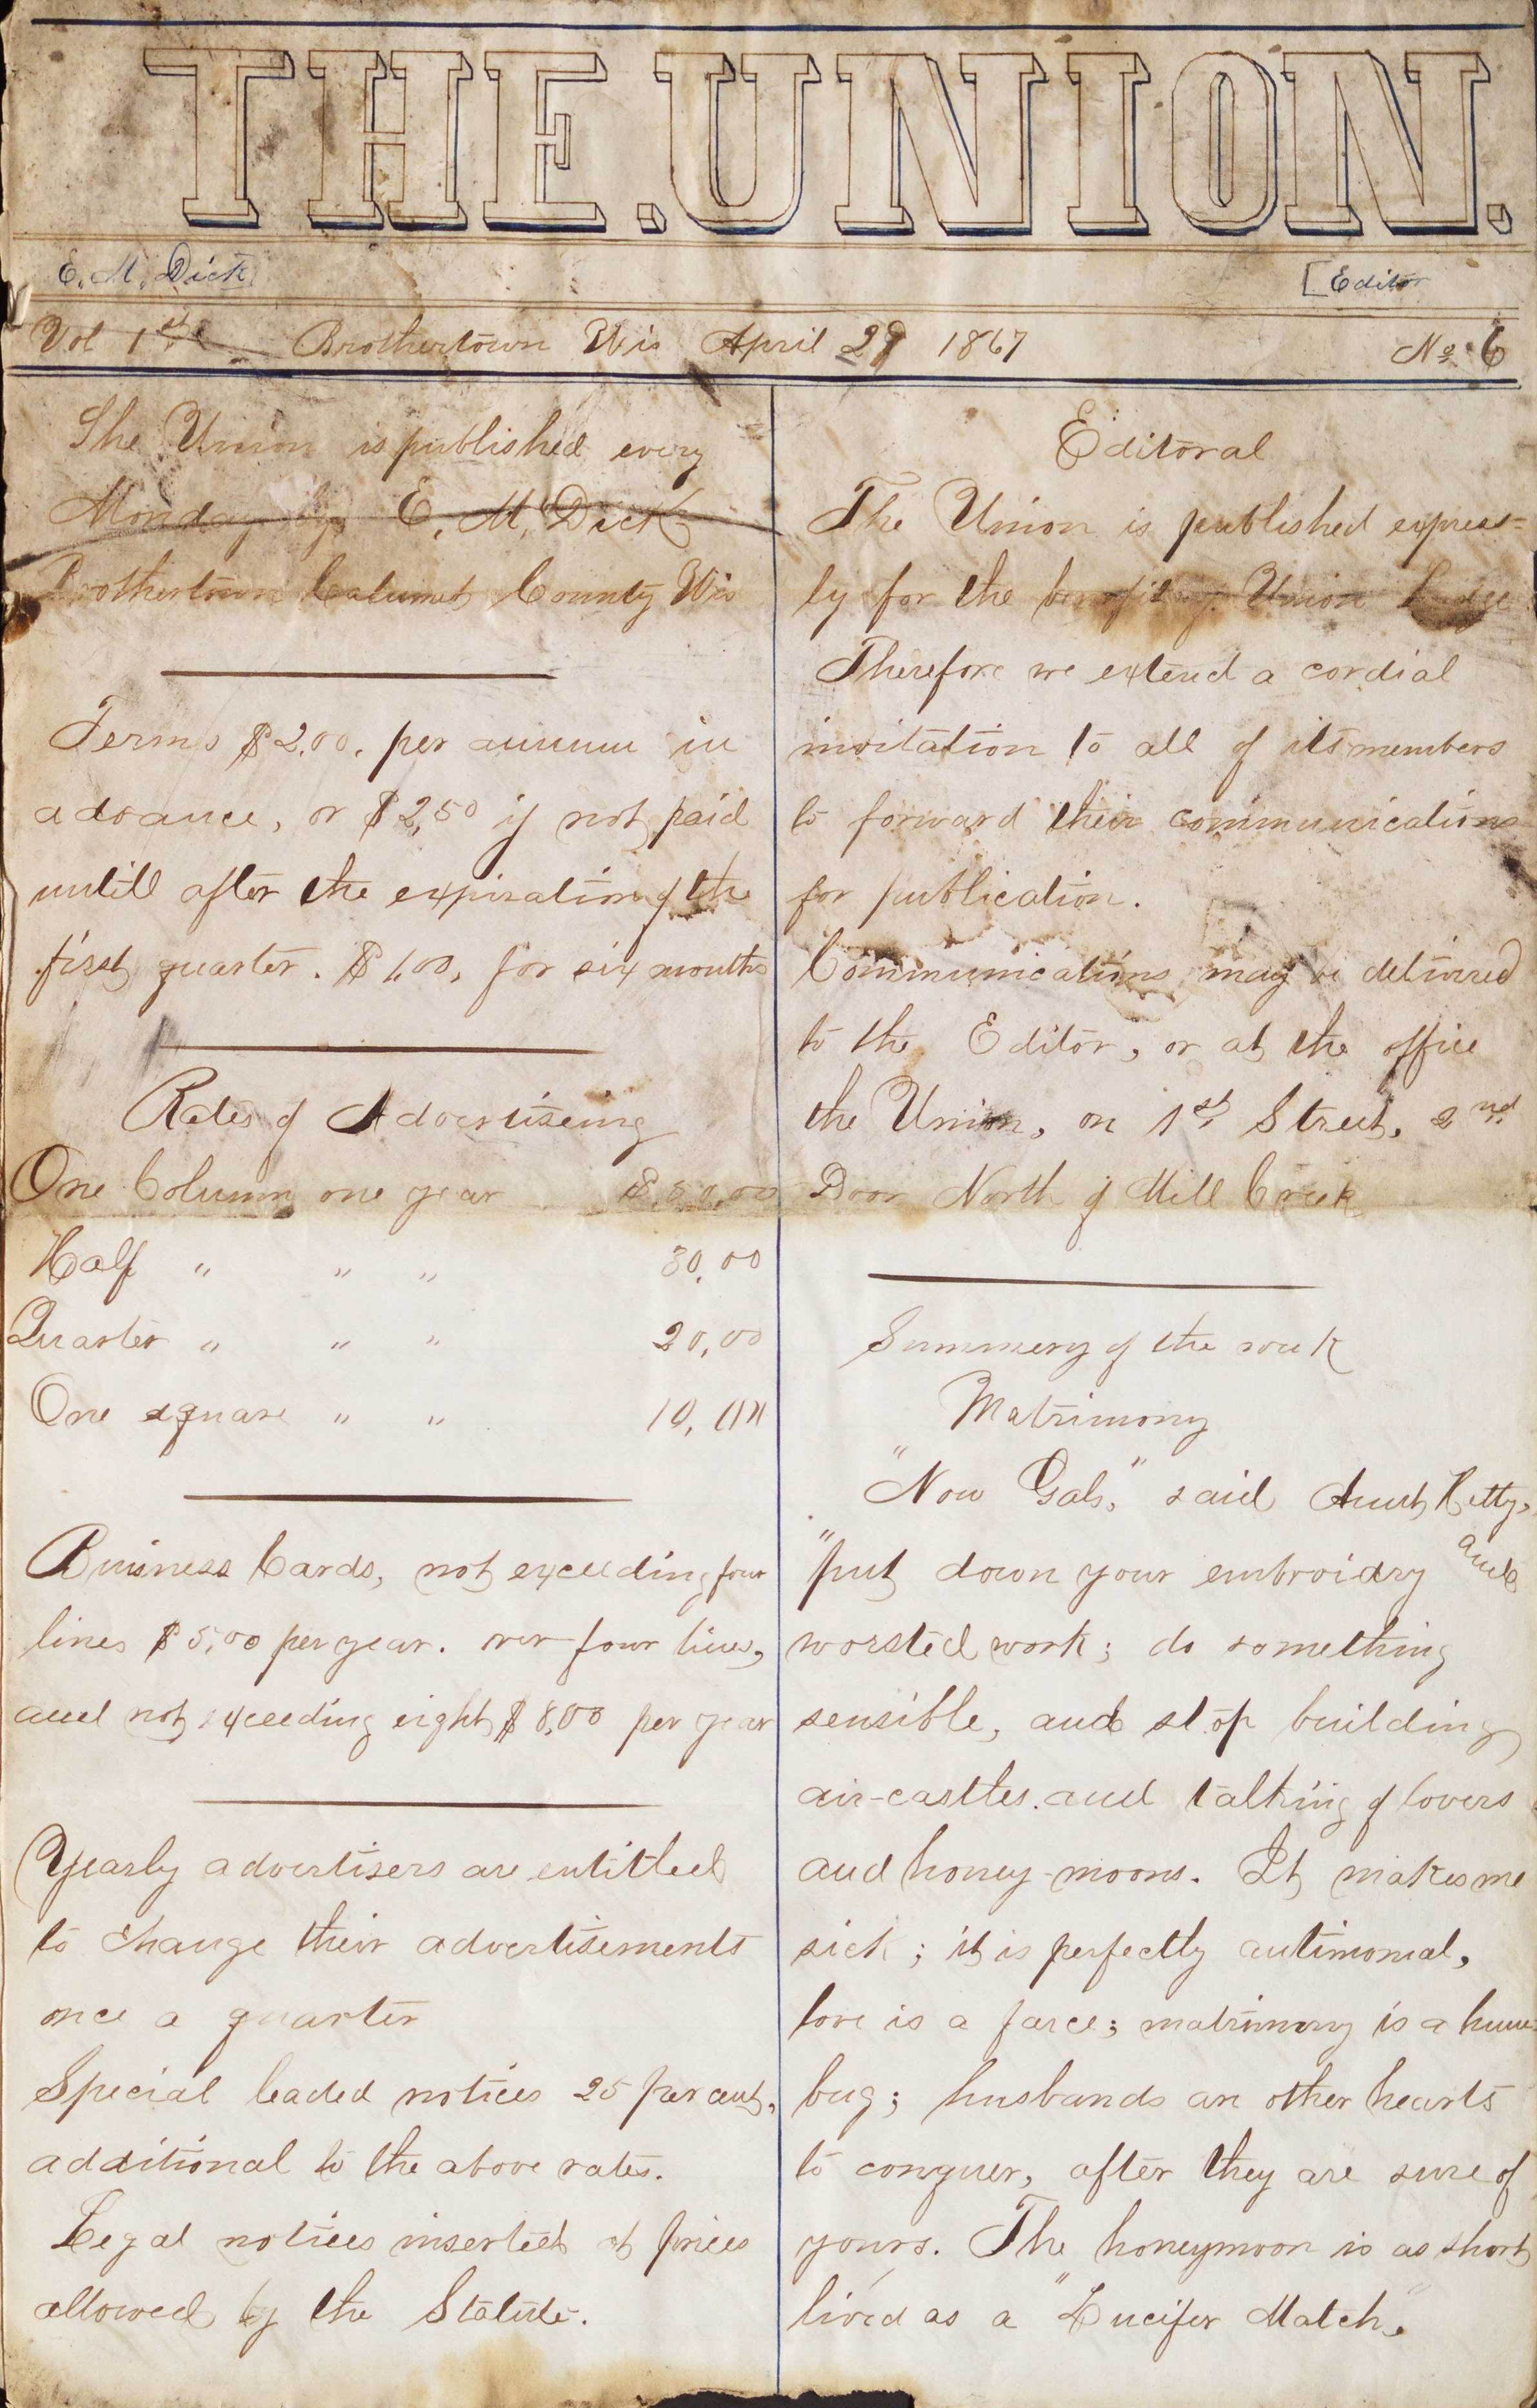 THE.UNION.
E. M. Dick [Editor
Vol 1st Brothertown Wis April 29 1867 No. 6
The Union is published every
Monday by E. M. Dick
Brothertown Calumet County Wis
Terms $2.00. per annum in
advance, or $2,50 if not paid
untill after the expiration of the
first quarter. $1,00, for six months
Rates of Advertiseing
One Column one year $50,00
Half " " " 30,00
Quarter " " " 20,00
One square " " 10,00
Buisness Cards, not exceeding four
lines $5,00 per year. over four lines,
and not exceeding eight $8,00 per year
Yearly advertisers are entitled
to change their advertisements
once a quarter
Special leaded notices 25 per cent,
additional to the above rates.
Legal notices inserted at prices
allowed by the Statute.
Editoral
The Union is published express=
ly for the benefit of Union Lodge
Therefore we extend a cordial
invitation to all of its members
to forward their communications
for publication.
Communications may be delivired
to the Editor, or at the office
the Union, on 1st Street, 2nd
Door North of Mill Creek
Summery of the week
Matrimony
"Now Gals," said Aunt Hetty,
"put down your embroidry and
worsted work; do something
sensible, and stop building
air-castles. and talking of lovers
and honey-moons. It makes me
sick; it is perfectly antimonial,
love is a farce; matrimony is a hum=
bug; husbands are other hearts
to conquer, after they are sure of
yours. The honeymoon is as short
lived as a "Lucifer Match."